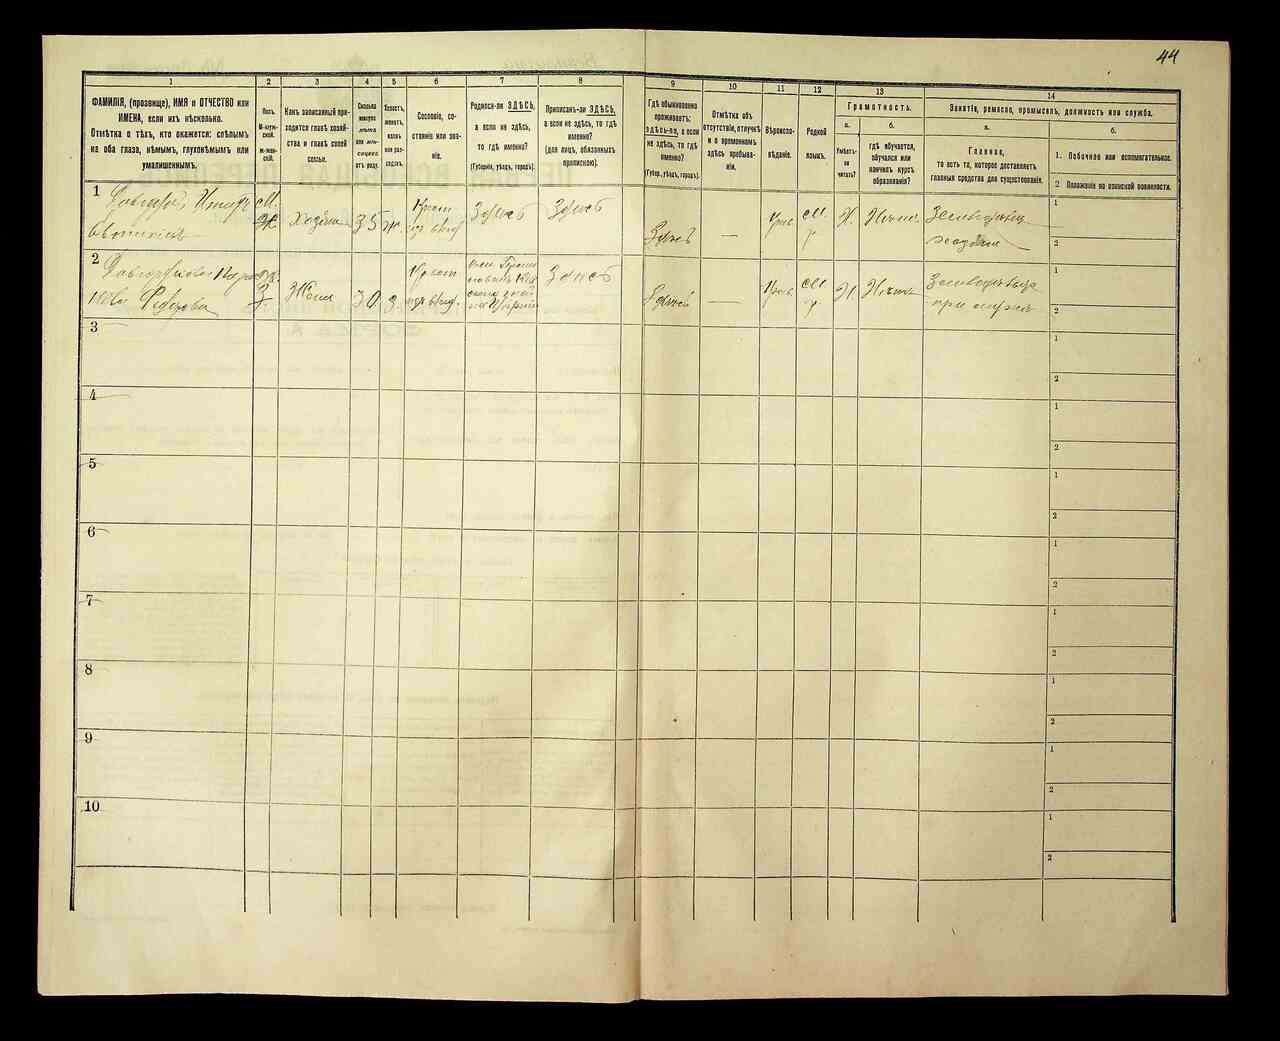 44
1
2
3
4
5
6
7
8
9
10
11
12
13
14
ФАМИЛІЯ, (прозвище), ИМЯ и ОТЧЕСТВО или
ИМЕНА, если ихъ нѣсколько.
Отмѣтка о тѣхъ, кто окажется: слѣпымъ
на оба глаза, нѣмымъ, глухонѣмымъ или
умалишеннымъ.
Полъ.
М-муж-
ской.
Ж-жен-
скій.
Какъ записанный при-
ходится главѣ хозяй-
ства и главѣ своей
семьи.
Сколько
минуло
лѣтъ
или мѣ-
сяцевъ
отъ роду.
Холостъ,
женатъ,
вдовъ
или раз-
веденъ.
Сословіе, со-
стояніе или зва-
ніе.
Родился-ли ЗДѢСЬ,
а если не здѣсь,
то гдѣ именно?
(Губернія, уѣздъ, городъ).
Приписанъ-ли ЗДѢСЬ,
а если не здѣсь, то гдѣ
именно?
(для лицъ, обязанныхъ
припискою).
Гдѣ обыкновенно
проживаетъ:
здѣсь-ли, а если
не здѣсь, то гдѣ
именно?
(Губер., уѣздъ, городъ).
Отмѣтка объ
отсутствіи, отлучкѣ
и о временномъ
здѣсь пребыва-
ніи.
Вѣроиспо-
вѣданіе.
Родной
языкъ.
Грамотность.
а.
Умѣетъ-
ли
читать?
б.
гдѣ обучается,
обучался или
кончилъ курсъ
образованія?
Занятіе, ремесло, промыселъ, должность или служба.
а.
Главное,
то есть то, которое доставляетъ
главныя средства для существованія.
б.
1. Побочное или вспомогательное.
2 Положеніе по воинской повинности.
1
М.
Ж
Хозяинъ
35
Ж.
Крест
Здѣсь
Здѣсь
Здѣсь
—
Прав
М.
р.
Н.
1
2
2
Федорова
Жена
30
З.
Крест
Здѣсь
Здѣсь
—
Прав
М
р.
Н.
при мужѣ
1
2
3
1
2
4
1
2
5
1
2
6
1
2
7
1
2
8
1
2
9
1
2
10
1
2